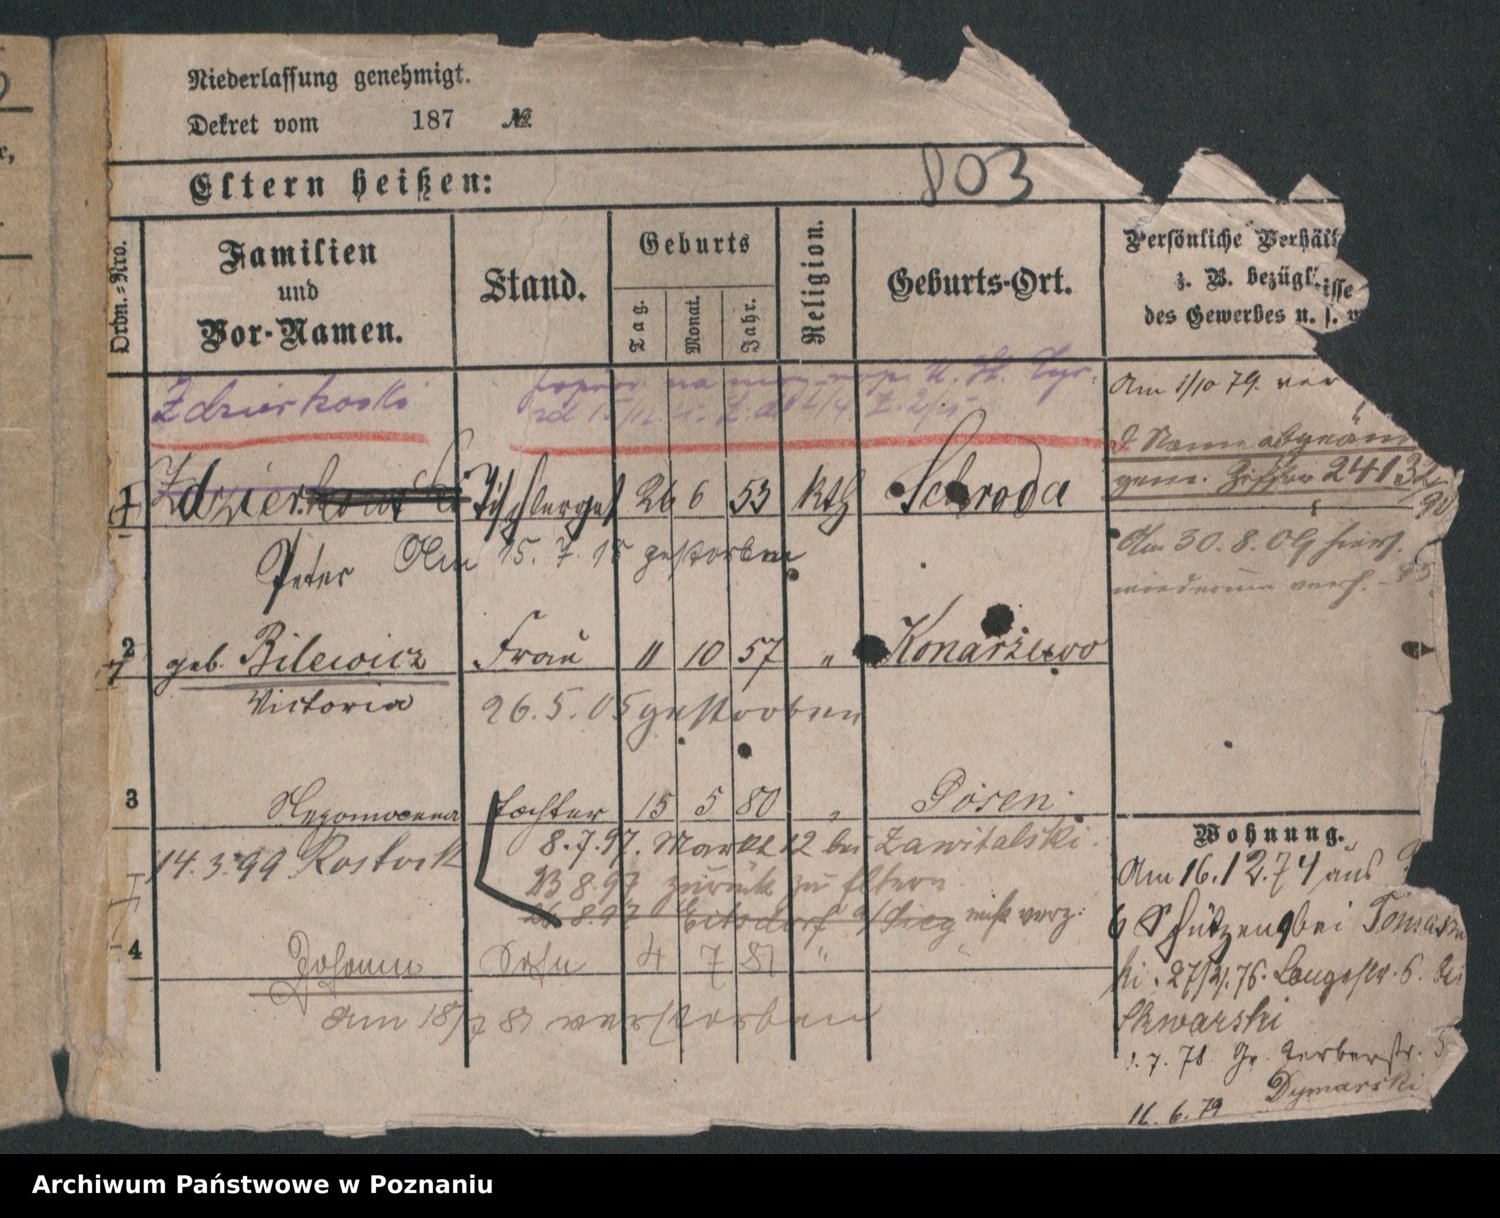 Niederlassung genehmigt.
Dekret vom 187 №
Eltern heißen:
803
Ordn.-Nro.
Familien
und
Vor-Namen.
Stand.
Geburts
Tag.
Monat.
Jahr.
Religion.
Geburts-Ort.
Persönliche Verhält
z. B. bezügl
isse
des Gewerbes u. s. w
Zdzierkoski
Am 1/10 79. ver
d. Namn abgeän
gem. Ziffer 24132/90
1 Zdzierkowski Tischlerges 26 6 53 kth Schroda
Peter Am 15. 7. 18 gestorben
Am 30. 8. 09 hiers.
wiederum
2 geb. Bilewicz Frau 11 10 57 " Konarzewo
Victoria 26. 5. 05 gestorben
3 Nepomocena Tochter 15 5 80 " Posen
14.3.99 Rostock
8.7.97. Markt 12 bei Zawitalski.
23 8.97 zurück zu Eltern
26.8.97 Eitsdorf a/Sieg nicht verz.
4 Johann Sohn 4 7 81 " "
am 18/7 81 verstorben
Wohnung.
Am 16.12.74 aus
6 Schützen bei Tomasze
ki. 27/2/.76. Langestr. 6. bei
Skwarski
1. 7. 78. Gr. Gerberstr. 5
Dymarski
11. 6. 79
Archiwum Państwowe w Poznaniu